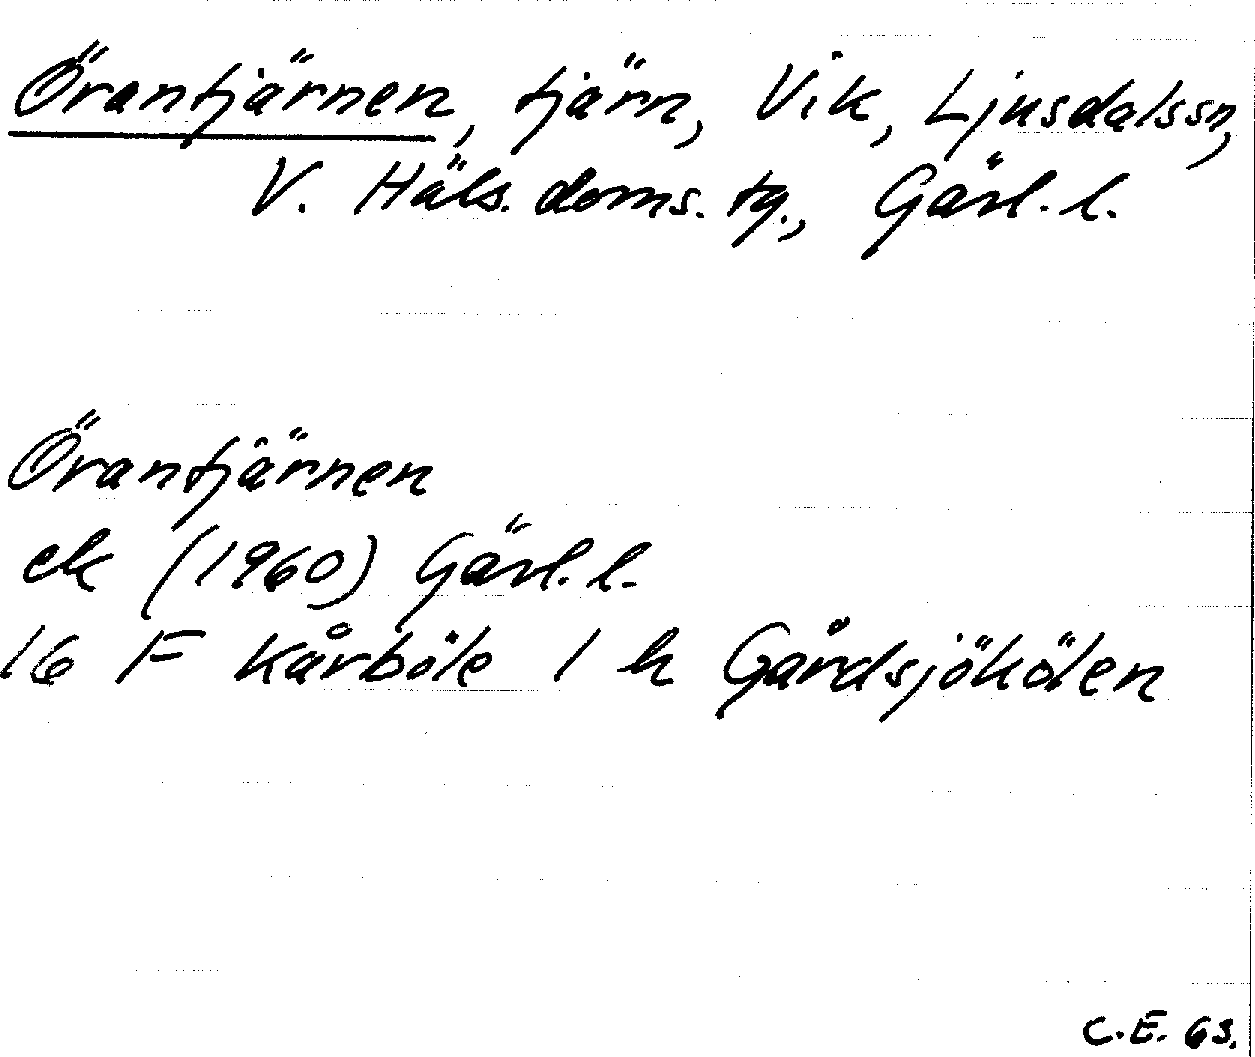 Örantjärnen, tjärn, Vik, Ljusdalssn,
V. Häls. doms. tg., Gävl. l.
Örantjärnen
ek (1960) Gävl. l.
16 F Kårböle 1 h Gårdsjökölen
C.E. 63.